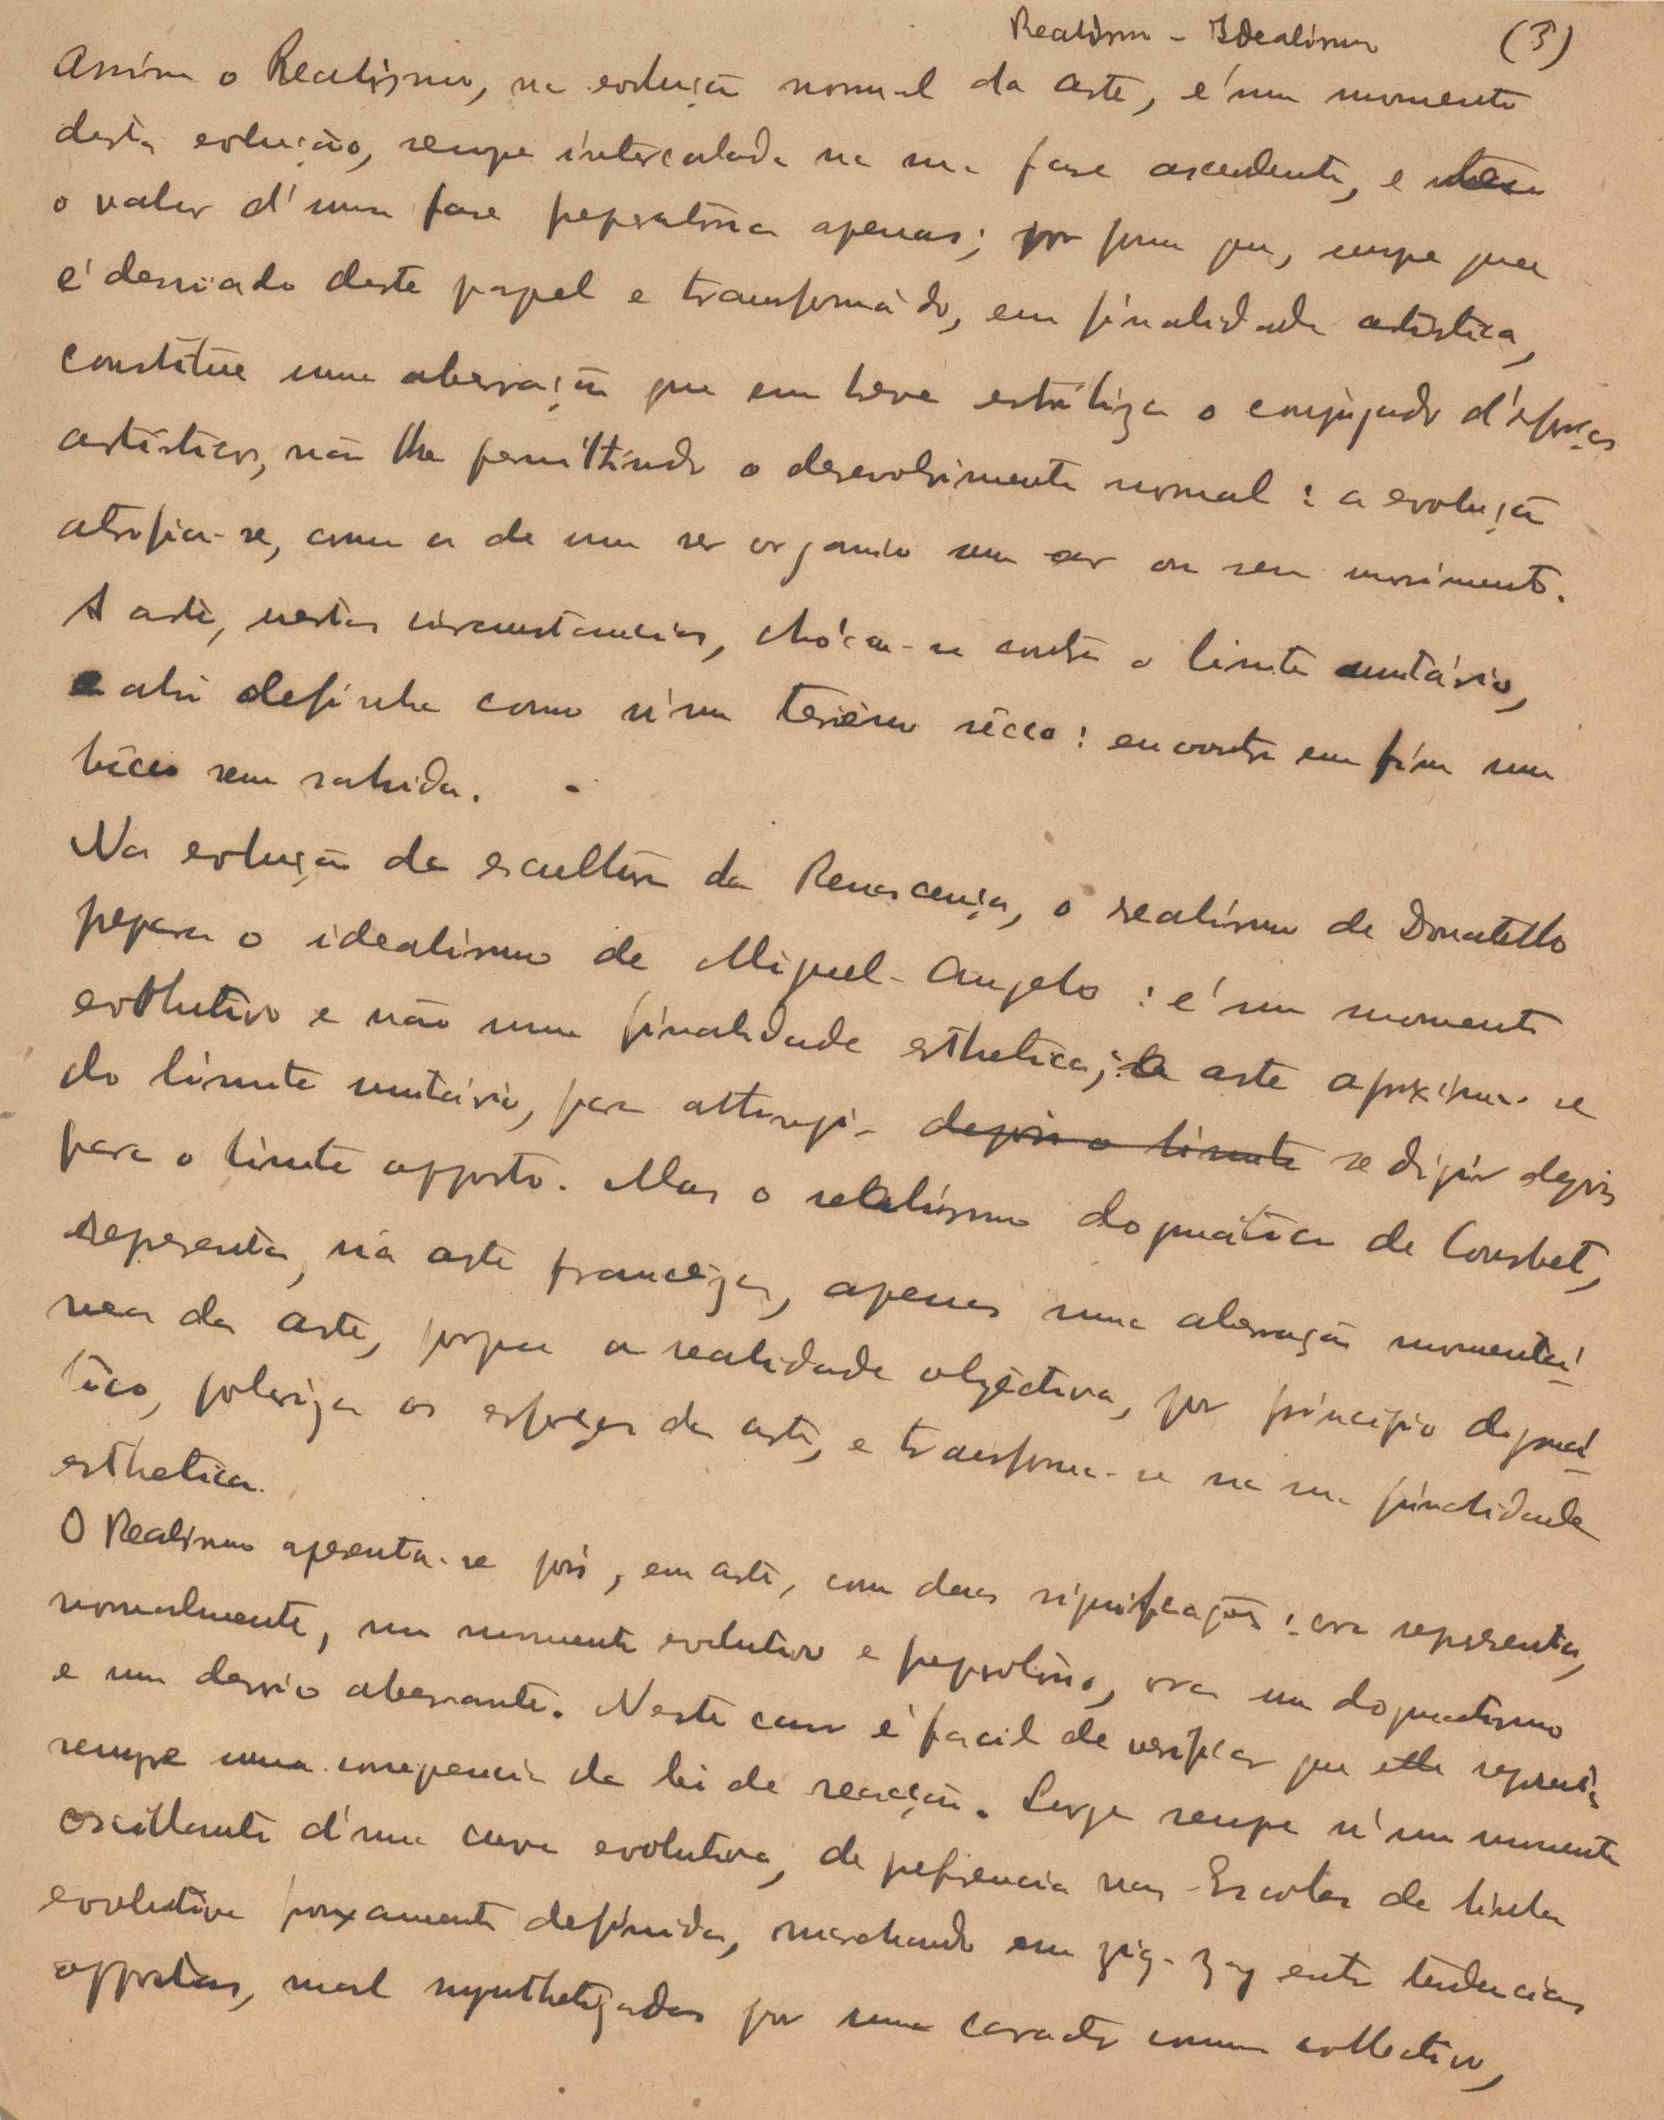 Realismo - Idealismo (3)
Assim o Realismo, na evolução normal da arte, é um momento
desta evolução, sempre intercalada na sua fase ascendente, e
o valor d'uma fase preparatoria apenas; por forma que, sempre que
é desviado deste papel e transformádo, em finalidade artística,
constitue uma aberração que em breve esteriliza o conjugado d'esforços
artísticos, não lhe permittindo o desevolvimento normal: a evolução
atrofia-se, como a de um ser organico sem ar ou sem movimento.
A arte, nestas circumstancias, chóca-se contra o limite unitário,
e ahi definha como n'um terrêno sêcco: encontra em fim um
bêcco sem sahida.
Na evolução da escultura da Renascença, o realismo de Donatello
prepara o idealismo de Miguel-Angelo: é um momento
evolutivo e não uma finalidade esthetica; a arte aproxima-se
do limite unitário, para attingir depois o limite se dirigir depois
para o limite opposto. Mas o realismo dogmático de Courbet,
representa, na arte francêza, apenas uma aberração momentâ-
nea da arte, porque a realidade objéctiva, por principio dogmá-
tico, polariza os esforços da arte, e transforma-se na sua finalidade
esthetica.
O Realismo apresenta-se pois, em arte, com duas significações: ora representa,
normalmente, um momento evolutivo e preparatorio, ora um dogmatismo
e um desvio aberrante. Neste caso é facil de verificar que elle representa
sempre uma consequencia da lei de reacção. Surge sempre n'um momento
oscillante d'uma curva evolutiva, de preferencia nas Escolas de linha
evolutiva frouxamente definida, marchando em zig-zag entre tendencias
oppostas, mal synthetizadas por um caracter commum collectivo,